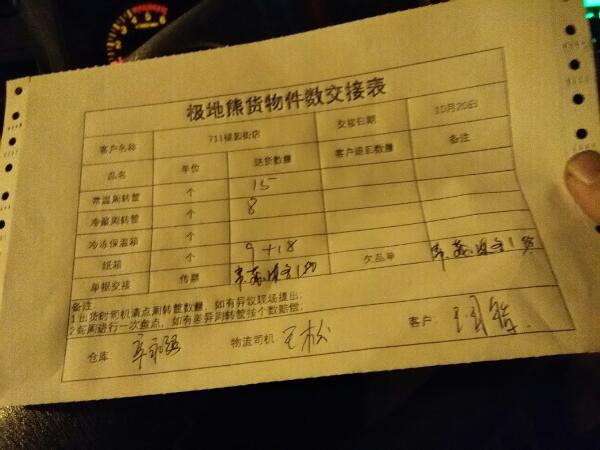 极地熊货物件数交接表
客户名称 711 街店 交接日期 10月20日
品名 单位 送货数量 客户退回数量 备注
常温周转筐 个 15
冷藏周转筐 个 8
冷冻保温箱 个
纸箱 9+18
单据交接 传票 欠品单
备注:
1.出货时司机清点周转筐数量,如有异议现场提出;
2.每周进行一次盘点,如有差异周转筐按个数赔偿;
仓库: 物流司机: 王松 客户: